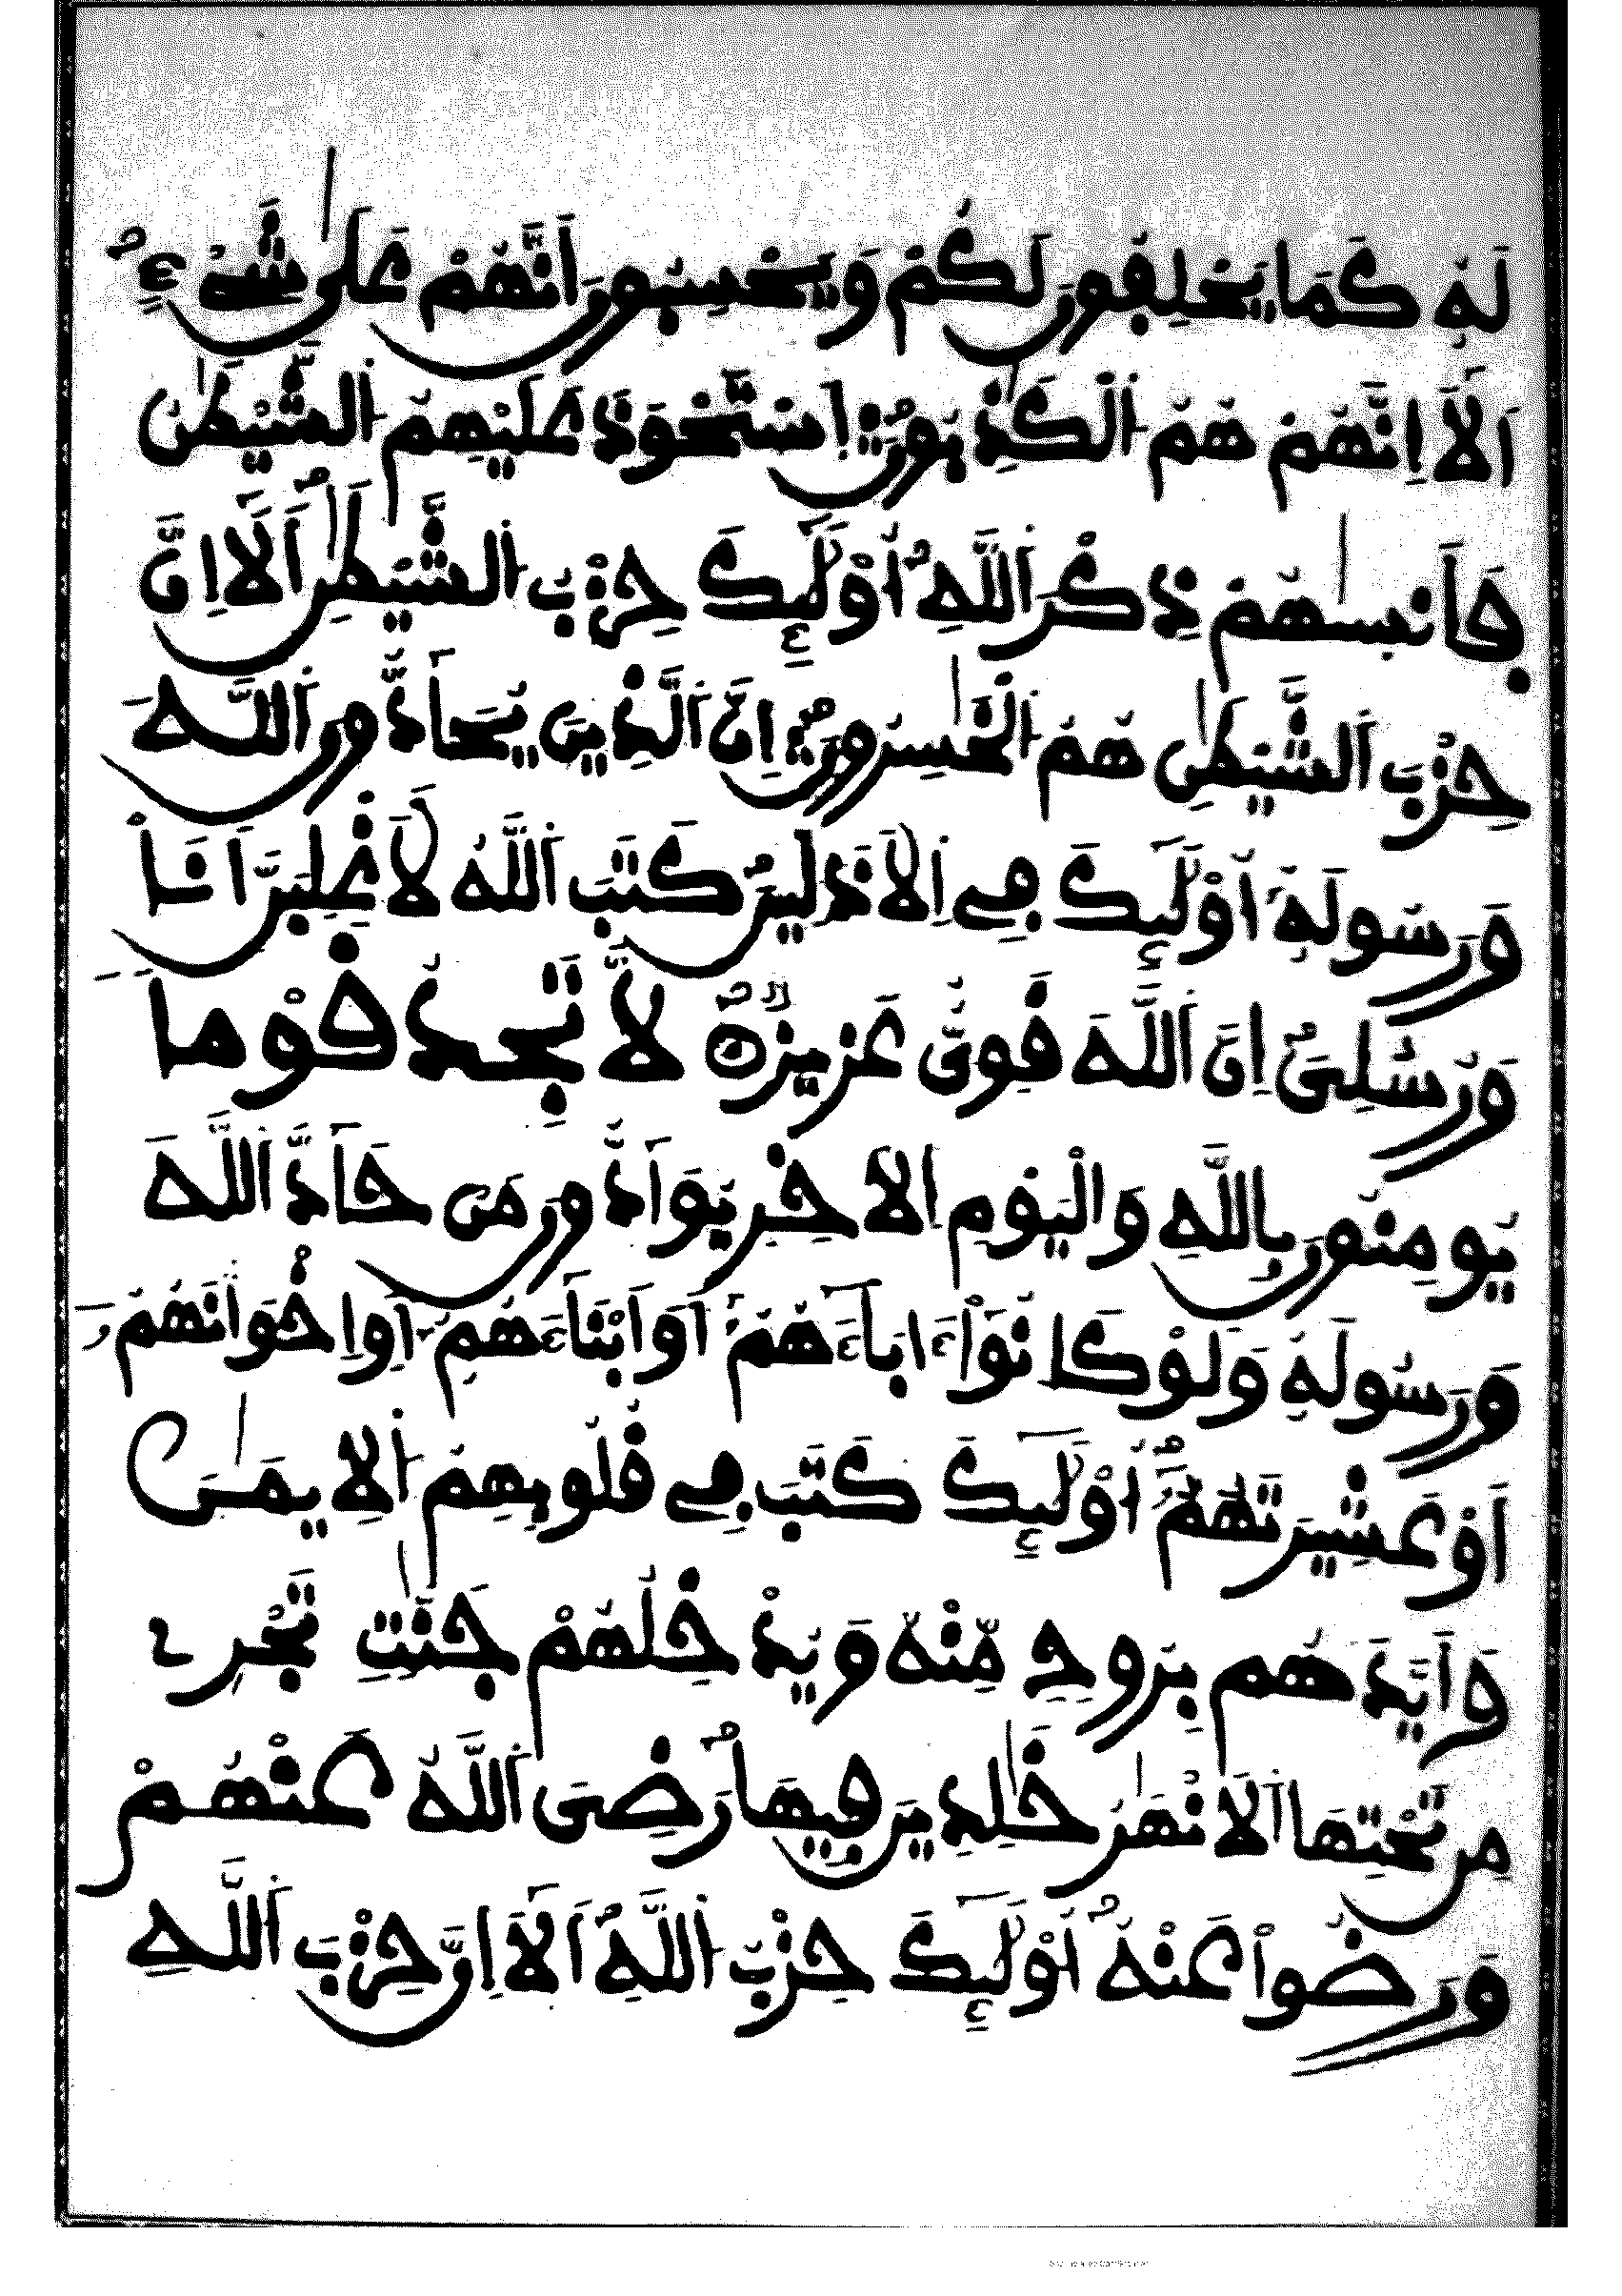 لَهُۥ كَمَا يَحْلِفُونَ لَكُمْ وَيَحْسِبُونَ أَنَّهُمْ عَلَىٰ شَىْءٍ
أَلَا إِنَّهُمْ هُمُ الْكَٰذِبُونَ اِسْتَحْوَذَ عَلَيْهِمُ الشَّيْطَٰنُ
فَأَنسَىٰهُمْ ذِكْرَ اللَّهِ أُوْلَٰئِكَ حِزْبُ الشَّيْطَٰنِ أَلَا إِنَّ
حِزْبَ الشَّيْطَٰنِ هُمُ الْخَٰسِرُونَ إِنَّ الَّذِينَ يُحَآدُّونَ اللَّهَ
وَرَسُولَهُۥ أُوْلَٰئِكَ فِى الْأَذَلِّينَ كَتَبَ اللَّهُ لَأَغْلِبَنَّ أَنَا
وَرُسُلِىَ إِنَّ اللَّهَ قَوِىٌّ عَزِيزٌ لَّا تَجِدُ قَوْمًا
يُومِنُونَ بِاللَّهِ وَالْيَوْمِ الْأَخِرِ يُوَآدُّونَ مَنْ حَآدَّ اللَّهَ
وَرَسُولَهُۥ وَلَوْ كَانُوٓاْ ءَابَآءَهُمُۥ أَوَ اَبْنَآءَهُمُۥ أَوِ اِخْوَٰنَهُمُۥ
أَوْ عَشِيرَتَهُمُۥ أُوْلَٰئِكَ كَتَبَ فِى قُلُوبِهِمُ الْإِيمَٰنَ
وَأَيَّدَهُم بِرُوحٍ مِّنْهُ وَيُدْخِلُهُمْ جَنَّٰتٍ تَجْرِى
مِن تَحْتِهَا الْأَنْهَٰرُ خَٰلِدِينَ فِيهَا رَضِىَ اللَّهُ عَنْهُمْ
وَرَضُواْ عَنْهُ أُوْلَٰئِكَ حِزْبُ اللَّهِ أَلَا إِنَّ حِزْبَ اللَّهِ